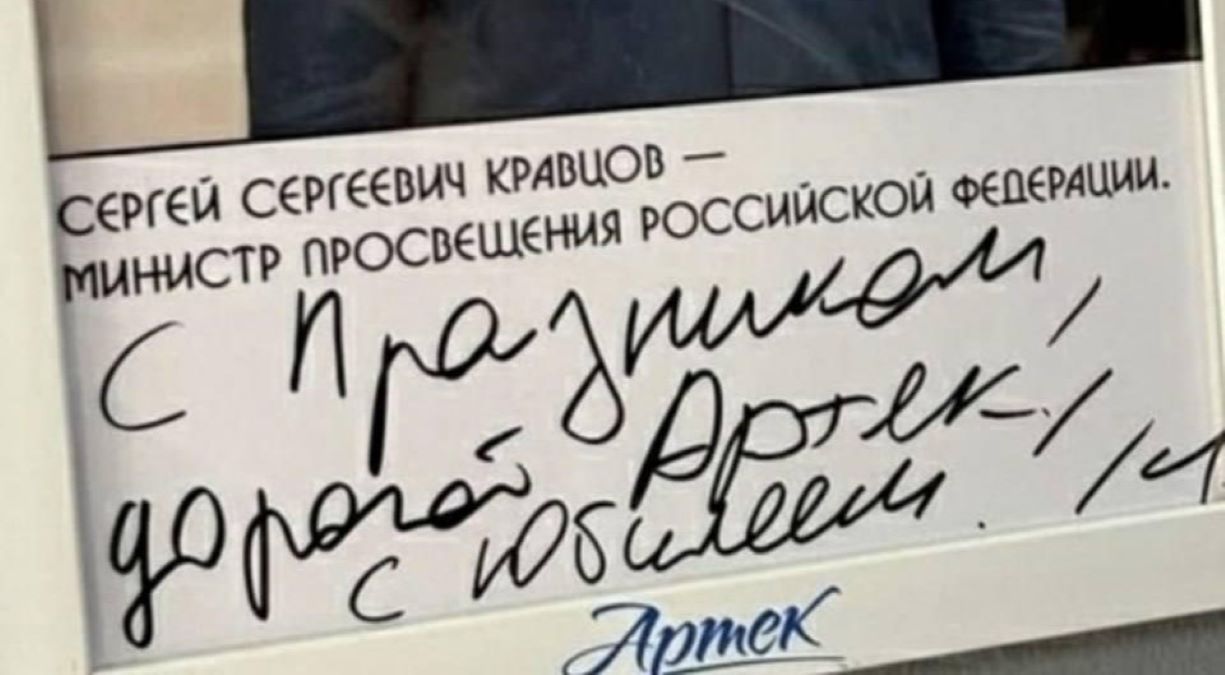 СЕРГЕЙ СЕРГЕЕВИЧ КРАВЦОВ —
МИНИСТР ПРОСВЕЩЕНИЯ РОССИЙСКОЙ ФЕДЕРАЦИИ.
С Празником,
дорогой Артек!
с Юбилеем.
Артек